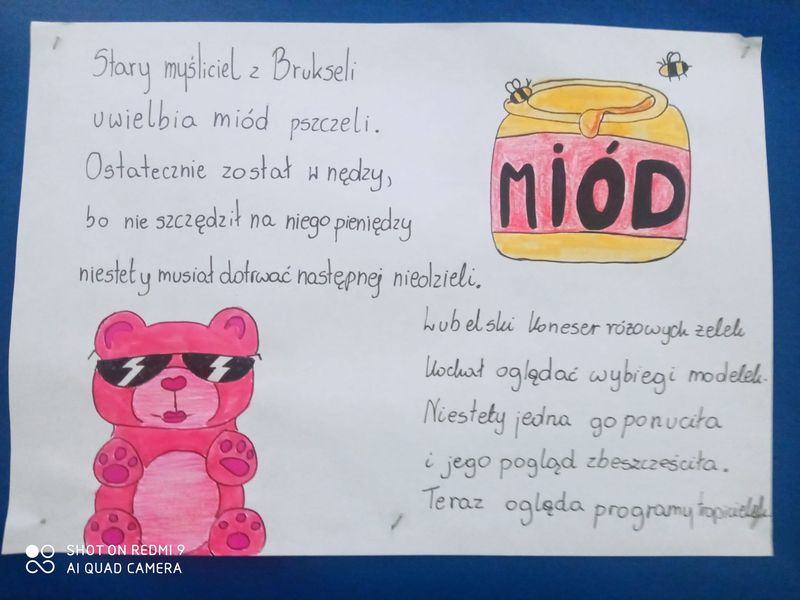 Stary myśliciel z Brukseli
uwielbia miód pszczeli.
Ostatecznie został w nędzy,
bo nie szczędził na niego pieniędzy
niestety musiał dotrwać następnej niedzieli.
MIÓD
Lubelski koneser różowych żelek
kochał oglądać wybiegi modelek.
Niestety jedna go ponuciła
i jego pogląd zbeszcześciła.
Teraz ogląda programy tropicielek
SHOT ON REDMI 9
AI QUAD CAMERA